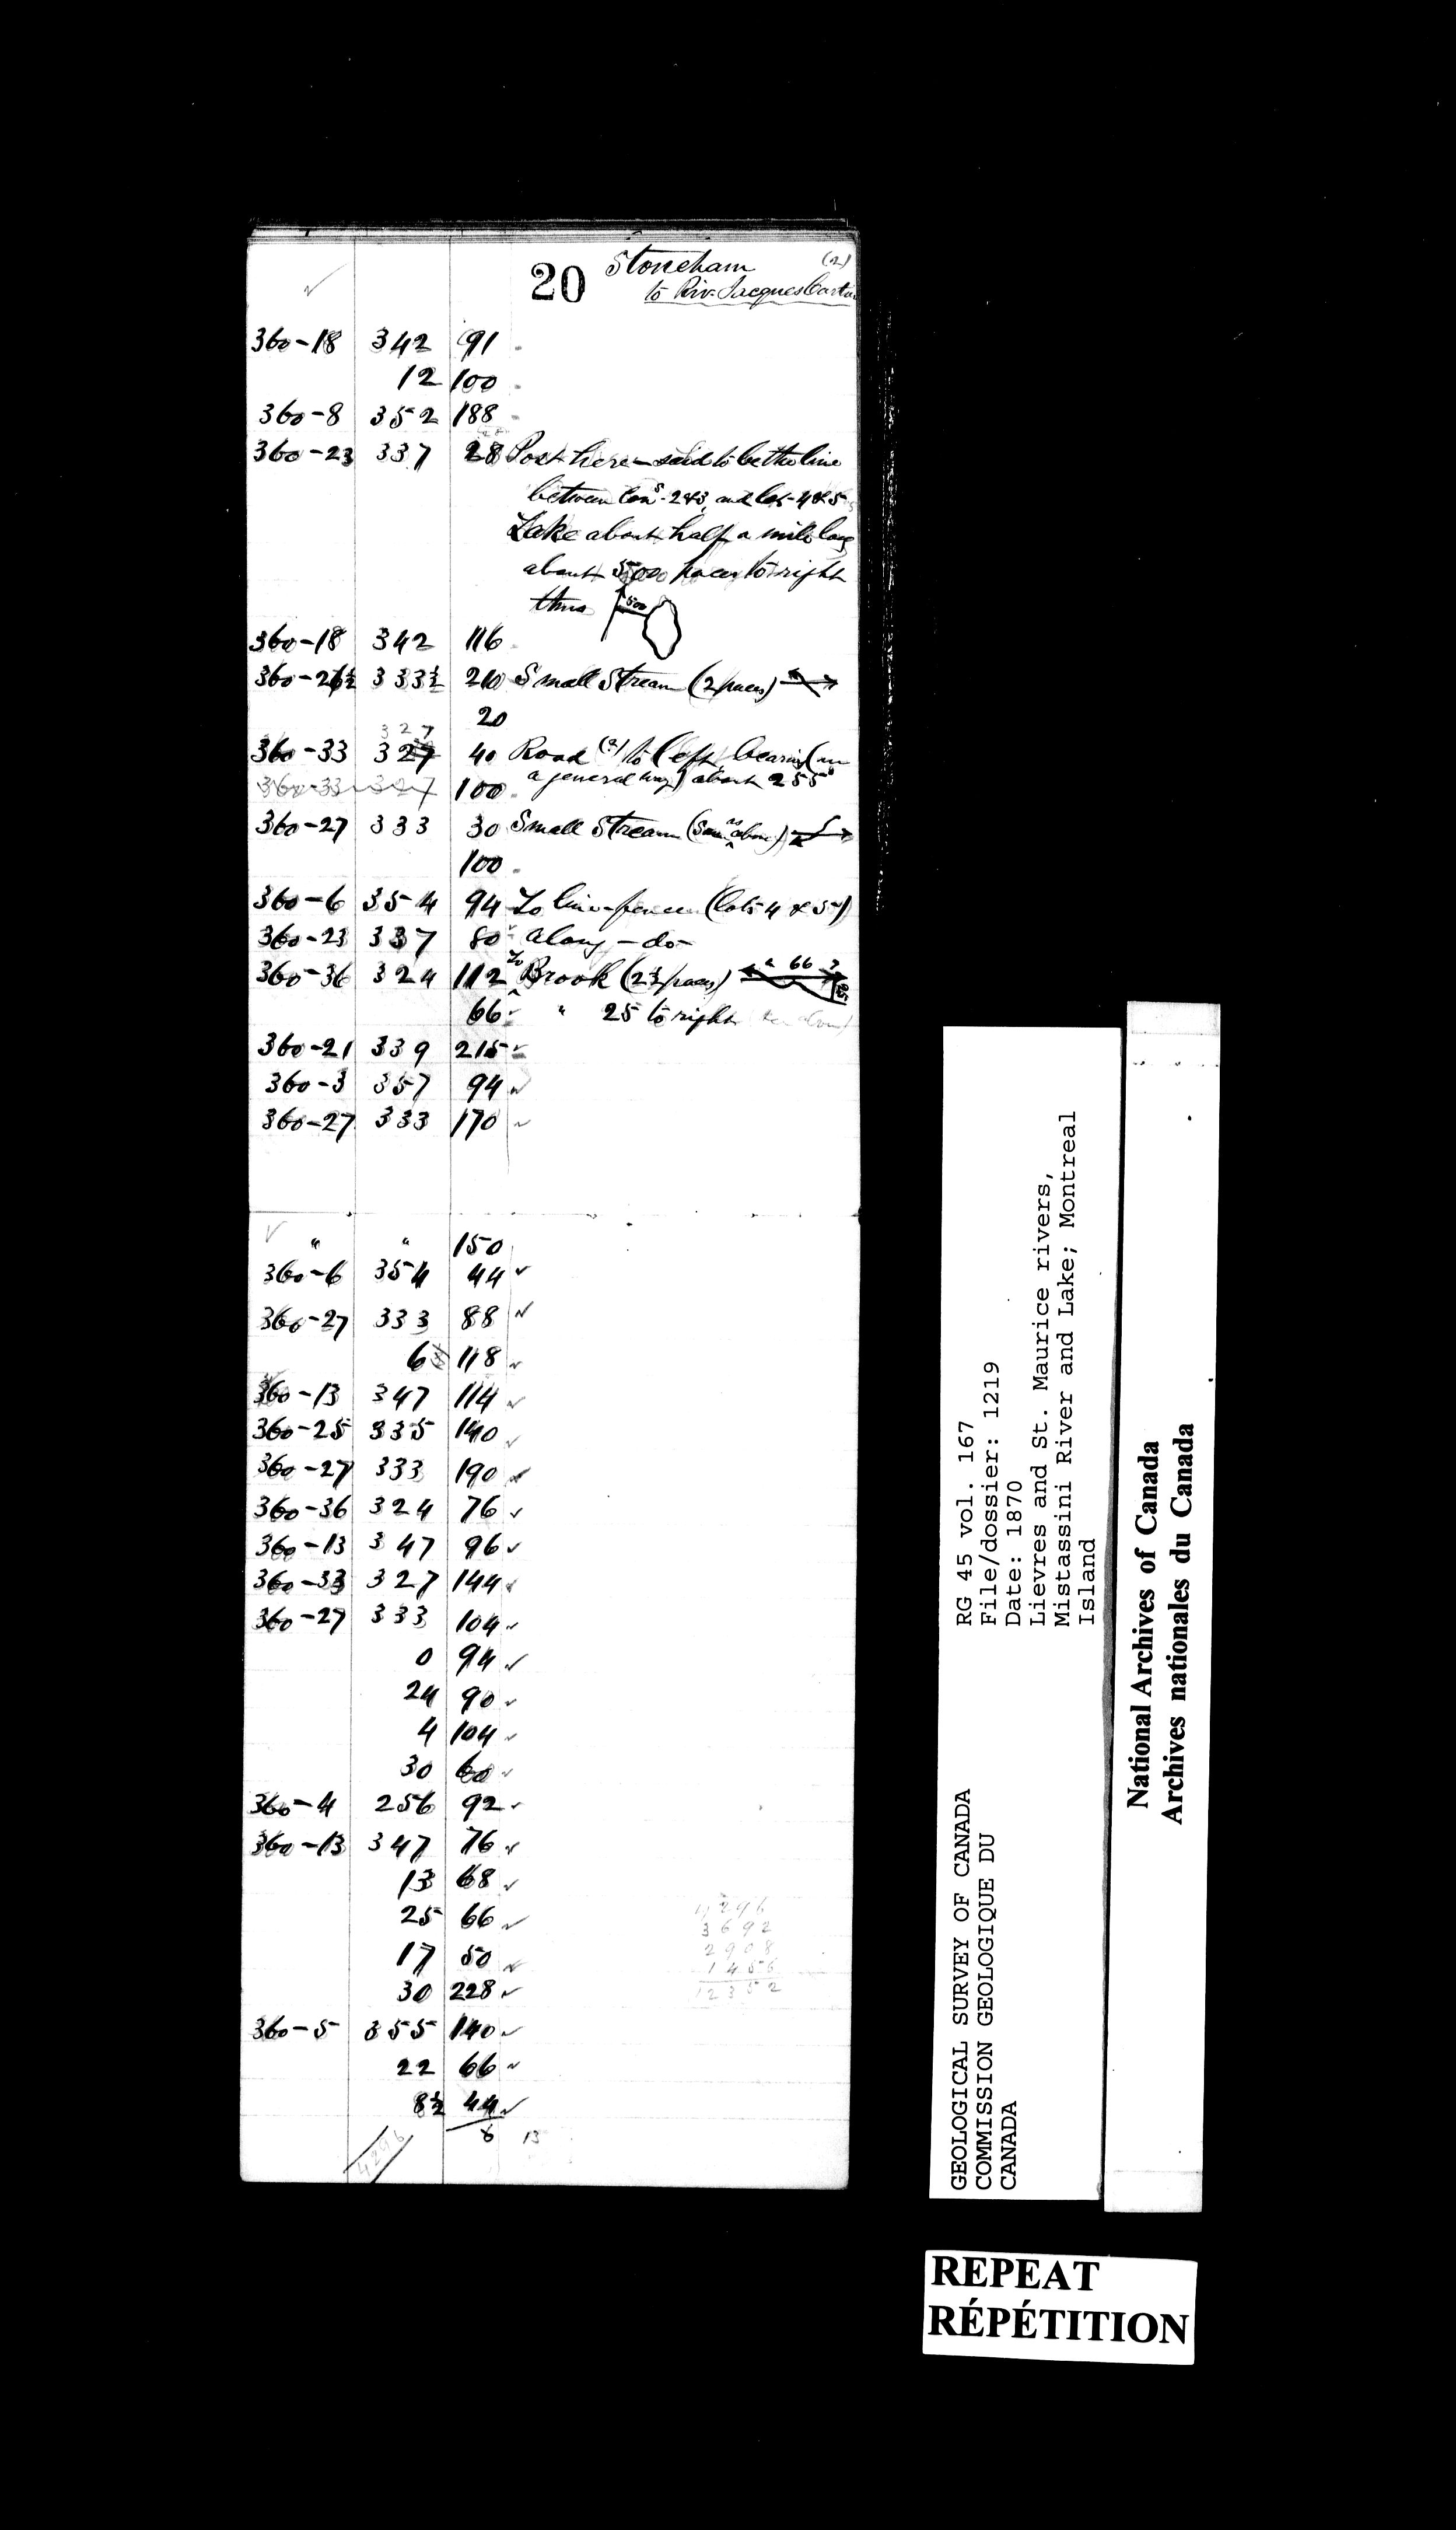 20 Stoneham (2)
to Riv. Jacques Cartier
360-18 342 91
12 100
360-8 352 188
360-23 337 28 Post here - said to be the line
between Cons. 2&3, and lots 4 & 5
Lake about half a mile long
about 500 paces to right
thus 500
360-18 342 116
360-26½ 333½ 210 Small Stream (2 paces)
20
327
360-33 327 40 Road (?) to left, bearing (in
a general way) about 255°
360-33 327 100
360-27 333 30 Small Stream (same as above)
100
360-6 354 94 To line-fence (lots 4 & 5)
360-23 337 80 along - do -
360-36 324 112 To Brook (2½ paces) 66
66 " 25 to right
360-21 339 215
360-3 357 94
360-27 333 170
" " 150
360-6 354 44
360-27 333 88
6 118
360-13 347 114
360-25 335 140
360-27 333 190
360-36 324 76
360-13 347 96
360-33 327 144
360-27 333 104
0 94
24 90
4 104
30 60
360-4 256 92
360-13 347 76
13 68
25 66
17 50
30 228
360-5 355 140
22 66
8½ 44
8 13
4296
4296
3692
2908
1456
12352
RG 45 vol. 167
File/dossier: 1219
Date: 1870
Lievres and St. Maurice rivers,
Mistassini River and Lake; Montreal
Island
GEOLOGICAL SURVEY OF CANADA
COMMISSION GEOLOGIQUE DU
CANADA
National Archives of Canada
Archives nationales du Canada
REPEAT
RÉPÉTITION